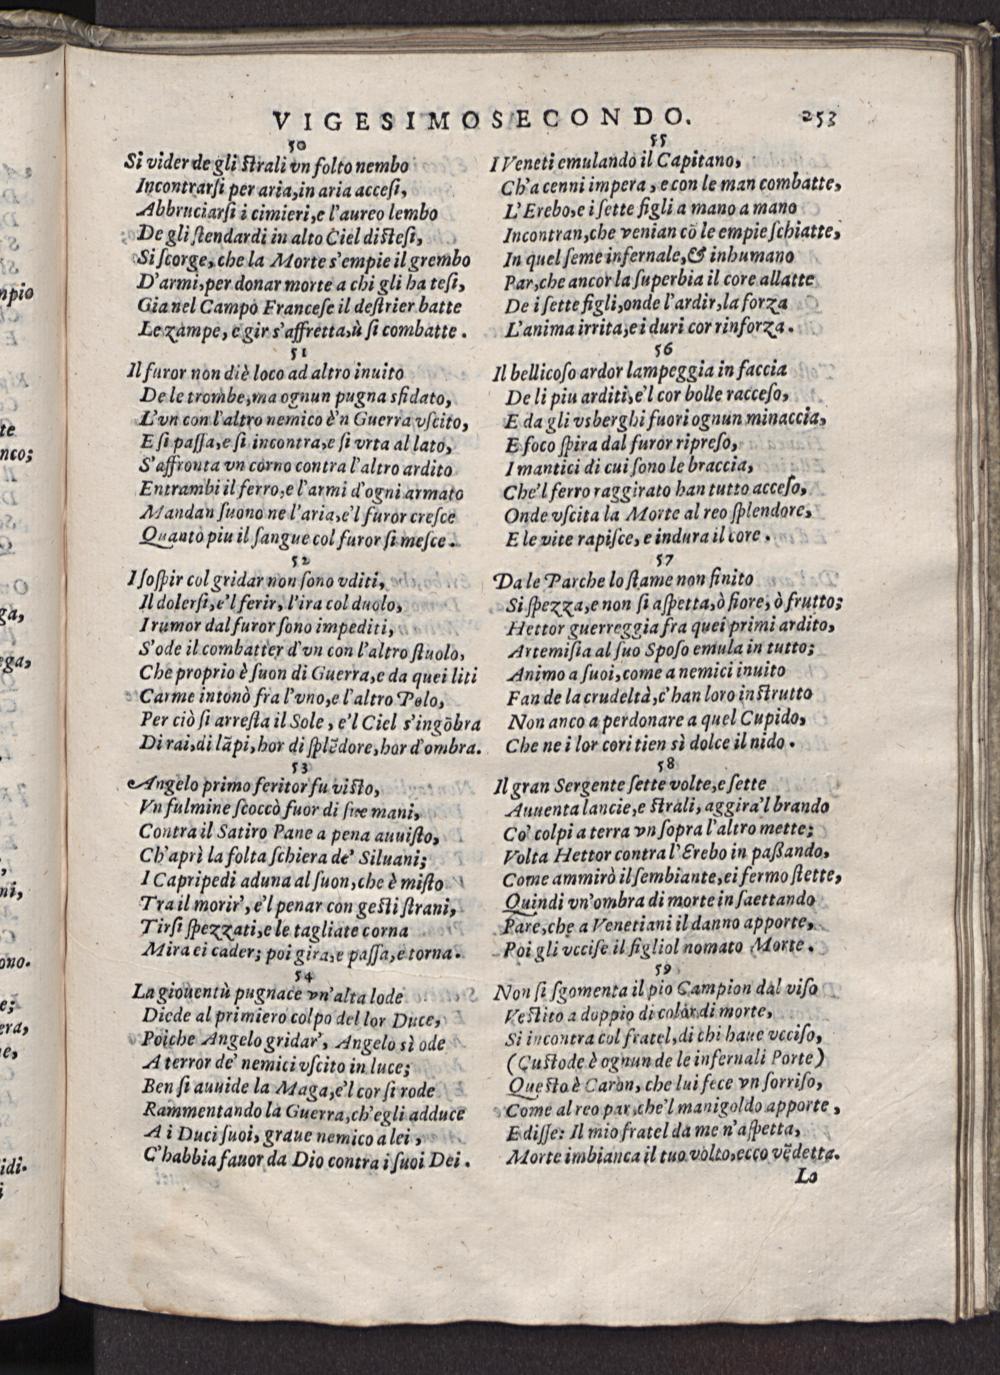 VIGESIMOSECONDO. 253
50
Si vider de gli ſtrali vn folto nembo
Incontrarſi per aria, in aria acceſi,
Abbruciarſi i cimieri, e l'aureo lembo
De gli ſtendardi in alto Ciel diſteſi,
Si ſcorge, che la Morte s'empie il grembo
D'armi, per donar morte a chi gli ha teſi,
Gia nel Campo Franceſe il deſtrier batte
Le zampe, e gir s'affretta, ù ſi combatte.
51
Il furor non diè loco ad altro inuito
De le trombe, ma ognun pugna sfidato,
L'vn con l'altro nemico è'n Guerra vſcito,
E ſi paſſa, e ſi incontra, e ſi vrta al lato,
S'affronta vn corno contra l'altro ardito
Entrambi il ferro, e l'armi d'ogni armato
Mandan ſuono ne l'aria, e'l furor creſce
Quanto piu il ſangue col furor ſi meſce.
52
I ſoſpir col gridar non ſono vditi,
Il dolerſi, e'l ferir, l'ira col duolo,
I rumor dal furor ſono impediti,
S'ode il combatter d'vn con l'altro ſtuolo,
Che proprio è ſuon di Guerra, e da quei liti
Carme intonò fra l'vno, e l'altro Polo,
Per ciò ſi arreſta il Sole, e'l Ciel s'ingõbra
Di rai, di lãpi, hor di ſplẽdore, hor d'ombra.
53
Angelo primo feritor fu viſto,
Vn fulmine ſcoccò fuor di ſue mani,
Contra il Satiro Pane a pena auuiſto,
Ch'aprì la folta ſchiera de' Siluani;
I Capripedi aduna al ſuon, che è miſto
Tra il morir', e'l penar con geſti ſtrani,
Tirſi ſpezzati, e le tagliate corna
Mira ei cader; poi gira, e paſſa, e torna.
54
La giouentù pugnace vn'alta lode
Diede al primiero colpo del lor Duce,
Poiche Angelo gridar', Angelo sì ode
A terror de' nemici vſcito in luce;
Ben ſi auuide la Maga, e'l cor ſi rode
Rammentando la Guerra, ch'egli adduce
A i Duci ſuoi, graue nemico a lei,
C'habbia fauor da Dio contra i ſuoi Dei.
55
I Veneti emulando il Capitano,
Ch'a cenni impera, e con le man combatte,
L'Erebo, e i ſette figli a mano a mano
Incontran, che venian cõ le empie ſchiatte,
In quel ſeme infernale, & inhumano
Par, che ancor la ſuperbia il core allatte
De i ſette figli, onde l'ardir, la forza
L'anima irrita, e i duri cor rinforza.
56
Il bellicoſo ardor lampeggia in faccia
De li piu arditi, e'l cor bolle racceſo,
E da gli vsberghi fuori ognun minaccia,
E foco ſpira dal furor ripreſo,
I mantici di cui ſono le braccia,
Che'l ferro raggirato han tutto acceſo,
Onde vſcita la Morte al reo ſplendore,
E le vite rapiſce, e indura il core.
57
Da le Parche lo ſtame non finito
Si ſpezza, e non ſi aſpetta, ò fiore, ò frutto;
Hettor guerreggia fra quei primi ardito,
Artemiſia al ſuo Spoſo emula in tutto;
Animo a ſuoi, come a nemici inuito
Fan de la crudeltà, c'han loro inſtrutto
Non anco a perdonare a quel Cupido,
Che ne i lor cori tien sì dolce il nido.
58
Il gran Sergente ſette volte, e ſette
Auuenta lancie, e ſtrali, aggira'l brando
Co' colpi a terra vn ſopra l'altro mette;
Volta Hettor contra l'Erebo in paßando,
Come ammirò il ſembiante, ei fermo ſtette,
Quindi vn'ombra di morte in ſaettando
Pare, che a Venetiani il danno apporte,
Poi gli vcciſe il figliol nomato Morte.
59
Non ſi ſgomenta il pio Campion dal viſo
Veſtito a doppio di color di morte,
Si incontra col fratel, di chi haue vcciſo,
(Cuſtode è ognun de le infernali Porte)
Queſto è Caron, che lui fece vn ſorriſo,
Come al reo par, che'l manigoldo apporte,
E diſſe: Il mio fratel da me n'aſpetta,
Morte imbianca il tuo volto, ecco vẽdetta.
Lo